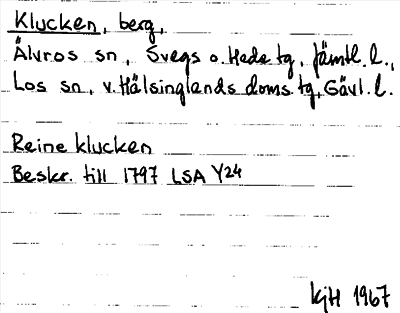 Klucken, berg,
Älvros sn, Svegs o. Hede tg, Jämtl. l.,
Los sn, v. Hälsinglands doms. tg, Gävl. l.
Reine klucken
Beskr. till 1797 LSA Y24
kjH 1967